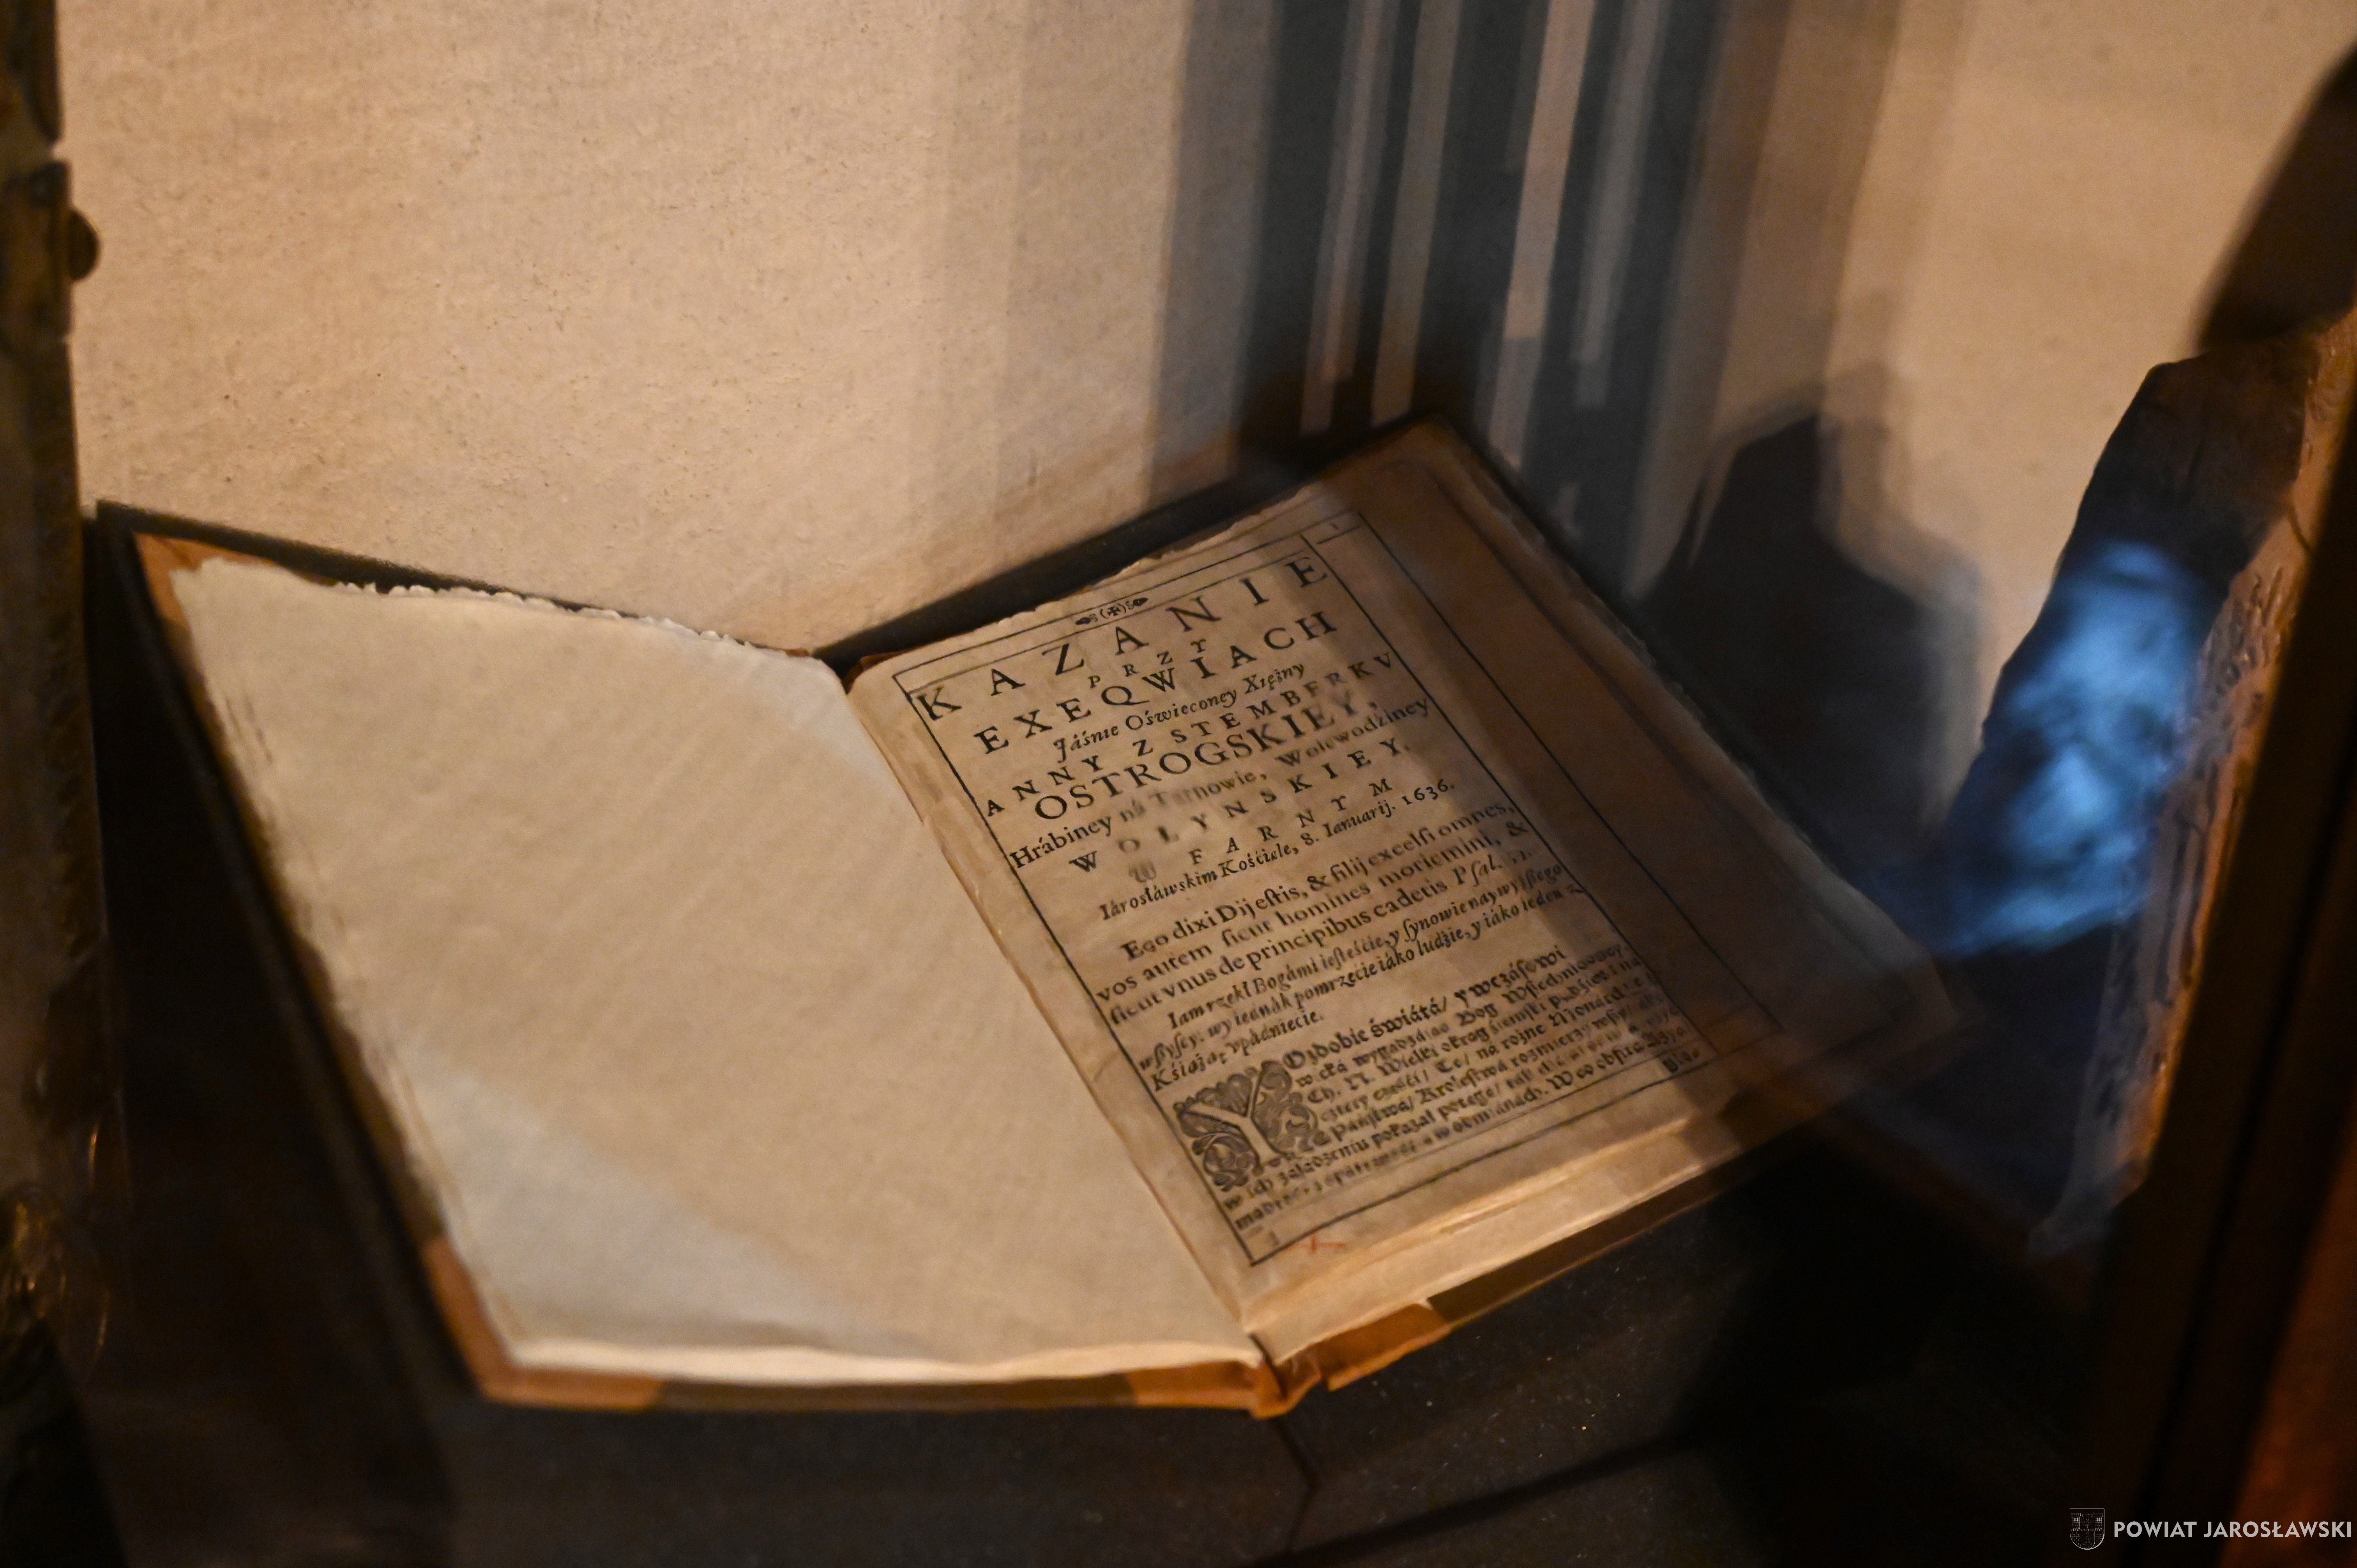 KAZANIE
PRZY
EXEQWIACH
Jáśnie Oświeconey Xiężny
ANNY Z STEMBERKV
OSTROGSKIEY,
Hrábiney ná Tarnowie, Woiewodźiney
WOŁYNSKIEY,
W FARNYM
Iárosłáwskim Kośćiele, 8. Ianuarij. 1636.
Ego dixi Dij eſtis, & filij excelſi omnes,
vos autem ſicut homines moriemini, &
ſicut vnus de principibus cadetis Pſal.
Iam rzekł Bogámi ieſteśćie, y ſynowie naywyżſzego
wſzyſcy: wy iednák pomrzećie iáko ludźie, y iáko ieden z
Kśiążąt vpádniećie.
Y Ozdobie świátá/ y wczáſowi
Bog Wſzechmogący
Ch. N. Wielki okrąg źiemſki podźielił na
cztery częśći/ Te/ na rożne Monarchie
Páńſtwá/ Kroleſtwá rozmierzywſzy
w ich záłożeniu pokazał potęgę/
w odmiánách. W co obfituie
POWIAT JAROSŁAWSKI